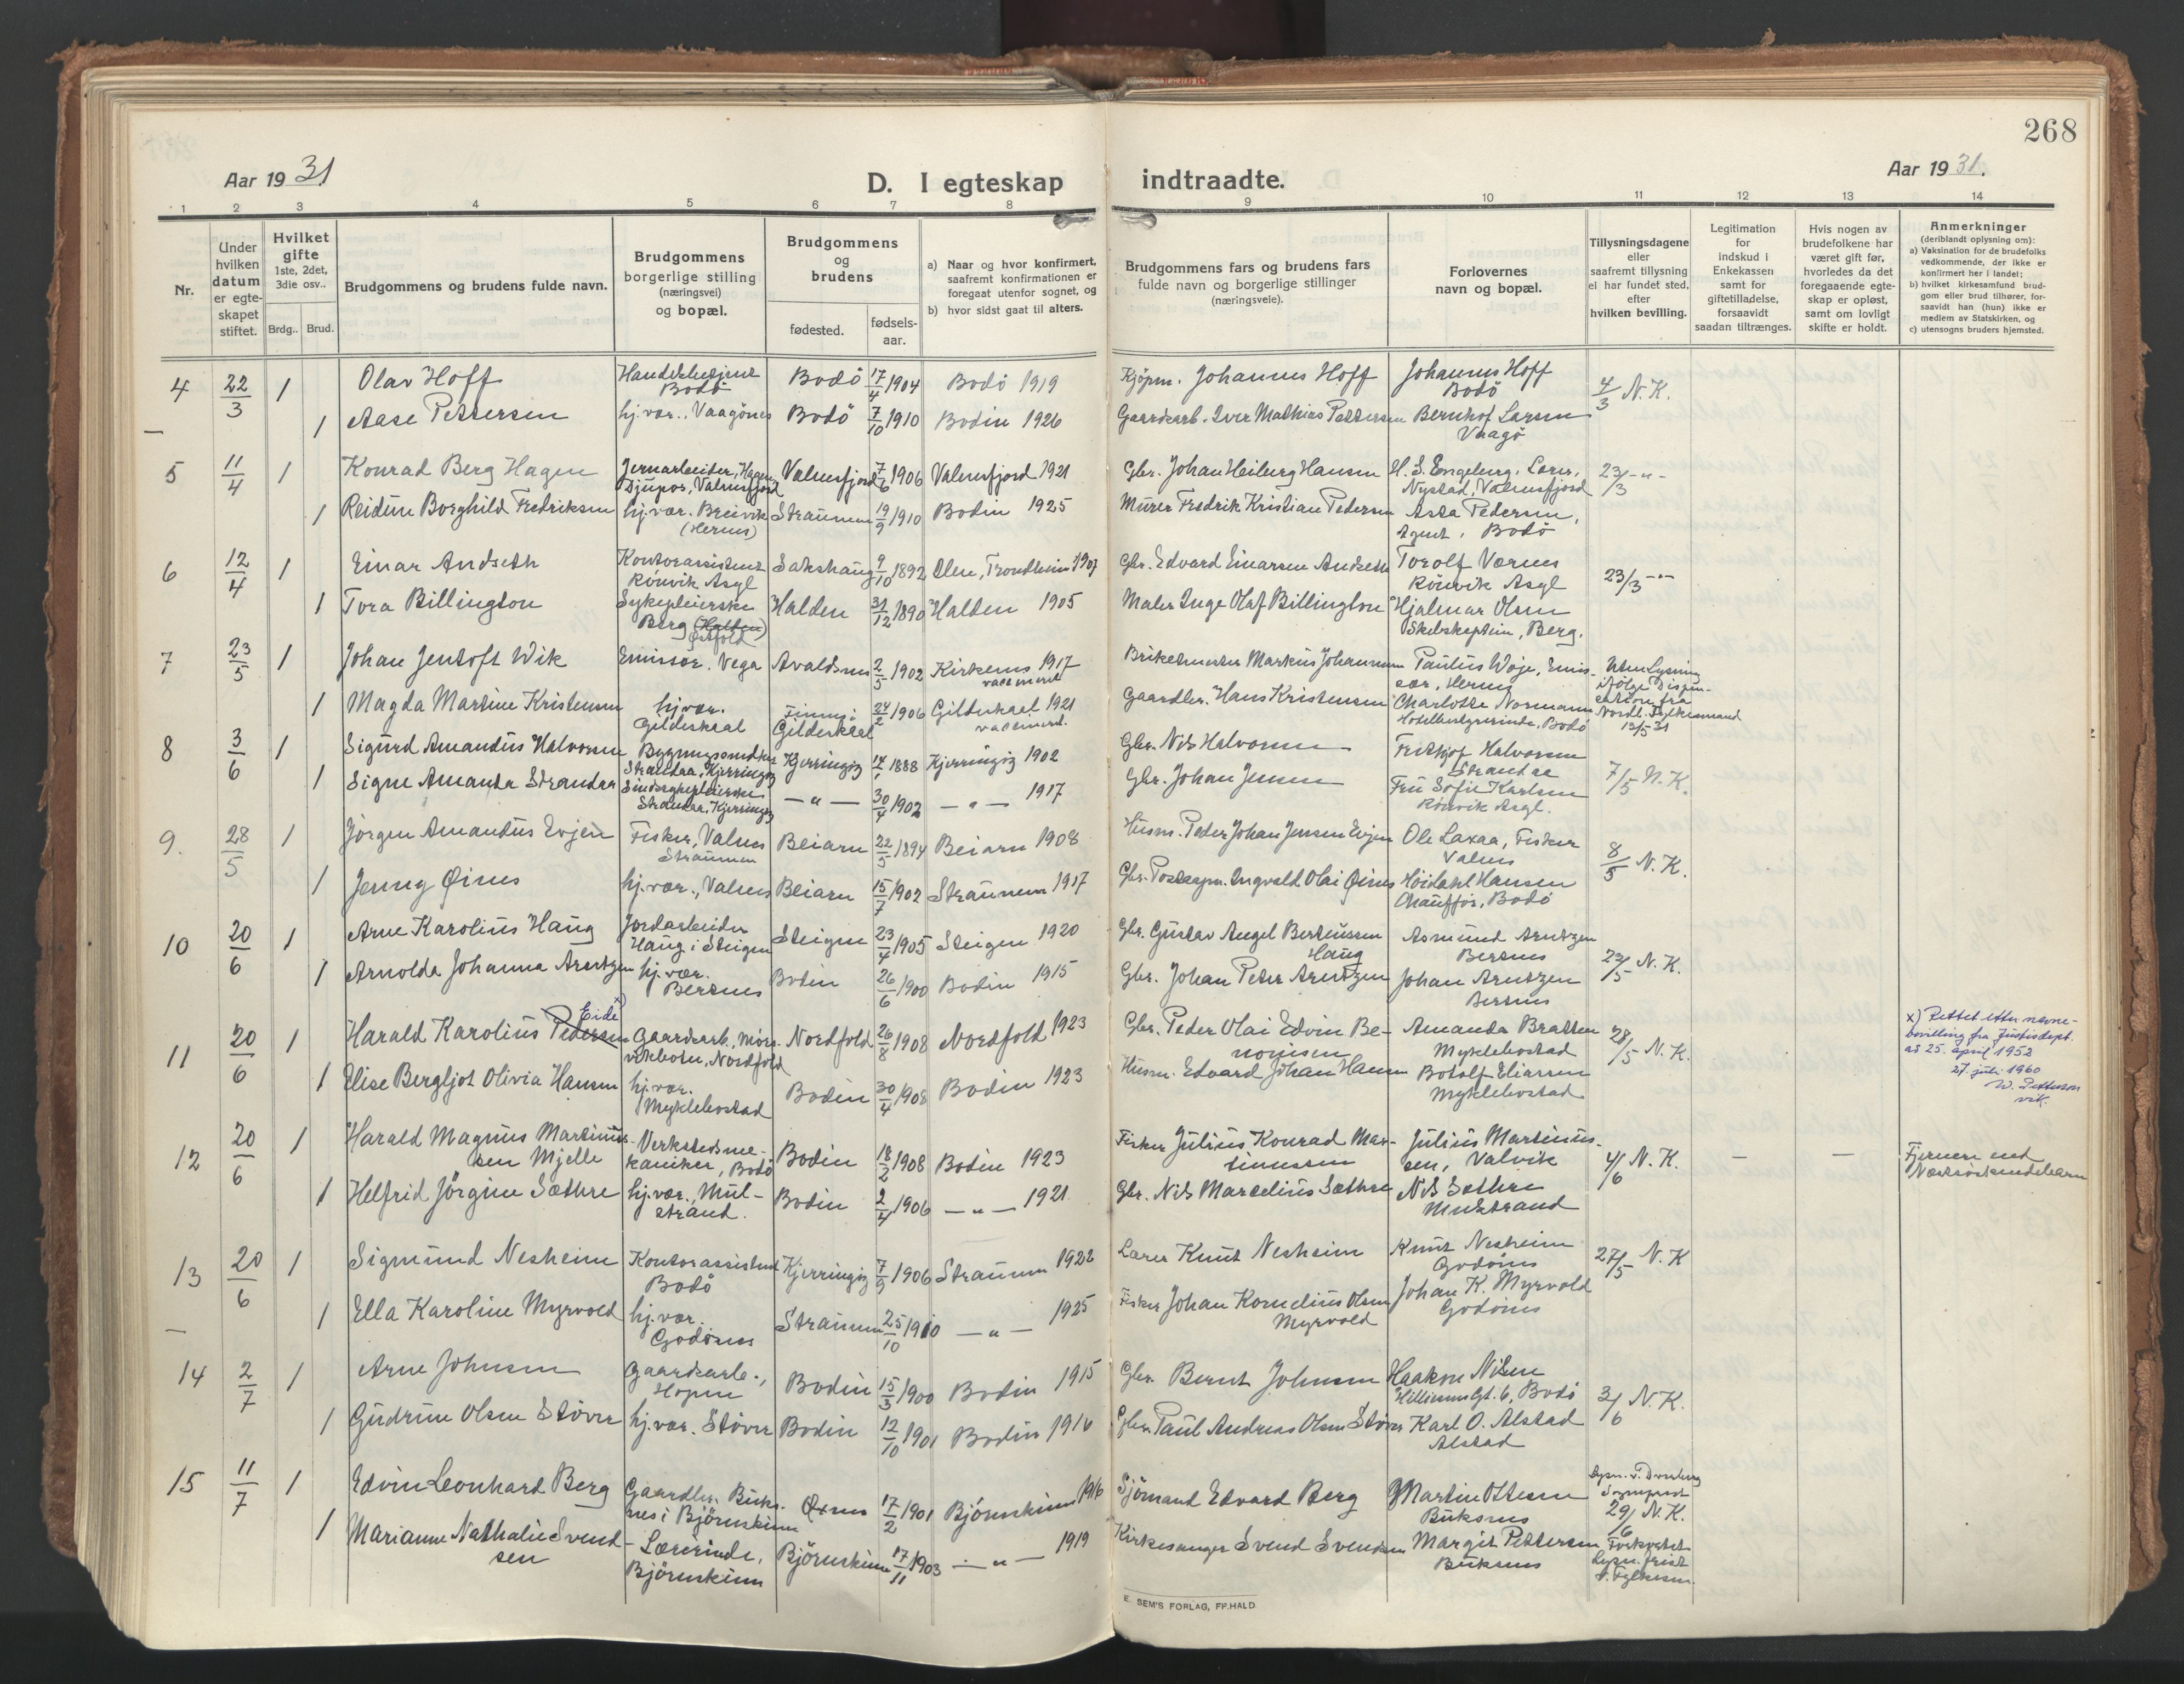 268
Aar 19 31.
D. I egteskap
indtraadte.
Aar 19 31.
1 2 3 4 5 6 7 8 9 10 11 12 13 14
Nr.
Under
hvilken
datum
er egte-
skapet
stiftet.
Hvilket
gifte
1ste, 2det,
3die osv..
Brdg..
Brud.
Brudgommens og brudens fulde navn.
Brudgommens
borgerlige stilling
(næringsvei)
og bopæl.
Brudgommens
og
brudens
fødested.
fødsels-
aar.
a) Naar og hvor konfirmert,
saafremt konfirmationen er
foregaat utenfor sognet, og
b) hvor sidst gaat til alters.
Brudgommens fars og brudens fars
fulde navn og borgerlige stillinger
(næringsveie).
Forlovernes
navn og bopæl.
Tillysningsdagene
eller
saafremt tillysning
ei har fundet sted,
efter
hvilken bevilling.
Legitimation
for
indskud i
Enkekassen
samt for
giftetilladelse,
forsaavidt
saadan tiltrænges.
Hvis nogen av
brudefolkene har
været gift før,
hvorledes da det
foregaaende egte-
skap er opløst,
samt om lovligt
skifte er holdt.
Anmerkninger
(deriblandt oplysning om):
a) Vaksination for de brudefolks
vedkommende, der ikke er
konfirmert her i landet;
b) hvilket kirkesamfund brud-
gom eller brud tilhører, for-
saavidt han (hun) ikke er
medlem av Statskirken, og
c) utensogns bruders hjemsted.
4 22/3 1 Olav Hoff
Handelsbetjent
Bodö
Bodö 17/4 1904 Bodö 1919
Kjöpm. Johannes Hoff
Johannes Hoff
Bodö
4/3 N.K.
1 Aase Pettersen
hj.vær., Vaagönes Bodö 7/10 1910 Bodin 1926
Gaardarb. Iver Mathias Pettersen
Bernhof Larsen
Vaagö
5 11/4 1 Konrad Berg Hagen
Jernarbeider, Hagen
Djupos, Valnesfjord
Valnesfjord 7/6 1906 Valnesfjord 1921
Gbr. Johan Heiberg Hansen
H. S. Engeberg, Lærer,
Nystad, Valnesfjord
23/3 -"-
1 Reidun Borghild Fredriksen
hj.vær. Breivik
(Hernes)
Straumen 19/9 1910 Bodin 1925
Murer Fredrik Kristian Pedersen
Asta Pedersen,
Agent, Bodö
6 12/4 1 Einar Andseth
Kontorassistent
Rönvik Asyl
Sakshaug 9/10 1892 Ilen, Trondheim 1907
Gbr. Edvard Einarsen Andseth
Torolf Værnes
Rönvik Asyl
23/3 -"-
1 Tora Billington
Sykepleierske
Berg (Halden)
Østfold
Halden 31/12 1890 Halden 1905
Maler Inge Olaf Billington
Hjalmar Olsen
Skibskaptein, Berg.
7 23/5 1 Johan Jentoft Wik
Emissær. Vega
Avaldsnes 2/5 1902 Kirkenes 1917
vaccinert
Briketmester Markus Johannesen
Paulus Woje, Emis-
sær, Hernes
Uten Lysning
ifölge Dispen-
sation fra
Nordl. Fylkesmand
12/5 31
1 Magda Martine Kristensen
hj.vær.
Gildeskaal
Finnes i
Gildeskaal
24/2 1906 Gildeskaal 1921
vaccinert.
Gaardbr. Hans Kristensen
Charlotte Normann
Hotelbestyrerinde, Bodö
8 3/6 1 Sigurd Amandus Halvorsen
Bygningssnedker
Strandaa, Kjerringöy
Kjerringöy 14/1 1888 Kjerringöy 1902
Gbr. Nils Halvorsen
Frithjof Halvorsen
Strandaa
7/5 N.K.
1 Signe Amanda Strandaa
Sindssykepleierske
Strandaa, Kjerringöy
— " — 30/4 1902 — " — 1917
Gbr. Johan Jensen
Fru Sofie Karlsen
Rönvik Asyl.
9. 28/5 1 Jörgen Amandus Evjen
Fisker, Valnes
Straumen
Beiarn 22/5 1894 Beiarn 1908
Husm. Peder Johan Jensen Evjen
Ole Laxaa, Fisker
Valnes
8/5 N.K.
1 Jenny Øines
hj.vær., Valnes Beiarn 15/7 1902 Straumen 1917
Gbr. Postexp. Ingvald Olai Øines
Höidahl Hansen
Chauffør, Bodö
10 20/6 1 Arne Karolius Haug
Jordarbeider
Haug i Steigen
Steigen 23/4 1905 Steigen 1920
Gbr. Gustav Angel Berteussen
Haug
Asmund Arntzen
Bertnes
23/5 N.K.
1 Arnolda Johanna Arntzen
hj.vær.
Bertnes
Bodin 26/6 1900 Bodin 1915
Gbr. Johan Peter Arntzen
Johan Arntzen
Bertnes
11 20/6 1 Harald Karolius Pedersen
Eide x)
Gaardarb., Mörs-
vikboten, Nordfold
Nordfold 26/8 1908 Nordfold 1923
Gbr. Peder Olai Edvin Be-
nonisen
Amanda Bratten
Myklebostad
28/5 N.K.
x) Rettet etter navne-
bevilling fra Justisdept.
av 25. april 1952
27. juli 1960
W. Pettersen
vik.
1 Elise Bergljot Olivia Hansen
hj.vær.
Myklebostad
Bodin 30/4 1908 Bodin 1923
Husm. Edvard Johan Hansen
Botolf Eliassen
Myklebostad
12 20/6 1 Harald Magnus Martinus-
sen Mjelle
Verkstedsme-
kaniker, Bodö
Bodin 18/2 1908 Bodin 1923
Fisker Julius Konrad Mar-
tinussen
Julius Martinus-
sen, Valvik
4/6 N.K. — —
Fjernere end
Næstsöskendebarn
1 Helfrid Jörgine Sæthre
hj.vær., Mul-
strand.
Bodin 2/4 1906 — " — 1921
Gbr. Nils Marcelius Sæthre
Nils Sæthre
Mulstrand
13 20/6 1 Sigmund Nesheim
Kontorassistent
Bodö
Kjerringöy 7/9 1906 Straumen 1922
Lærer Knut Nesheim
Knut Nesheim
Godönes
27/5 N.K
1 Ella Karoline Myrvold
hj.vær.
Godönes
Straumen 25/10 1910 — " — 1925
Fisker Johan Kornelius Olsen
Myrvold
Johan K. Myrvold
Godönes
14 2/7 1 Arne Johnsen
Gaardarb.,
Hopen
Bodin 15/3 1900 Bodin 1915
Gbr. Bernt Johnsen
Haakon Nilsen
Gt. 6, Bodö
3/6 N.K.
1 Gudrun Olsen Stöver
hj.vær. Stöver Bodin 12/10 1901 Bodin 1916
Gbr. Paul Andreas Olsen Stöver
Karl O. Alstad
Alstad
15 11/7 1 Edvin Leonhard Berg
Gaardbr. Buks-
nes i Björnskinn
Öxnes 17/2 1901 Björnskinn 1916
Sjömand Edvard Berg
Martin Ottesen
Buksnes
Lysn. v. Dverberg
Sogneprest
29/6 N.K.
1 Marianne Nathalie Svend-
sen
Lærerinde,
Björnskinn
Björnskinn 17/11 1903 — " — 1919
Kirkesanger Svend Svendsen
Margit Pettersen
Buksnes
Forkortet
Lysn. frist
v. Fylkesm.
E. SEM'S FORLAG, FR.HALD